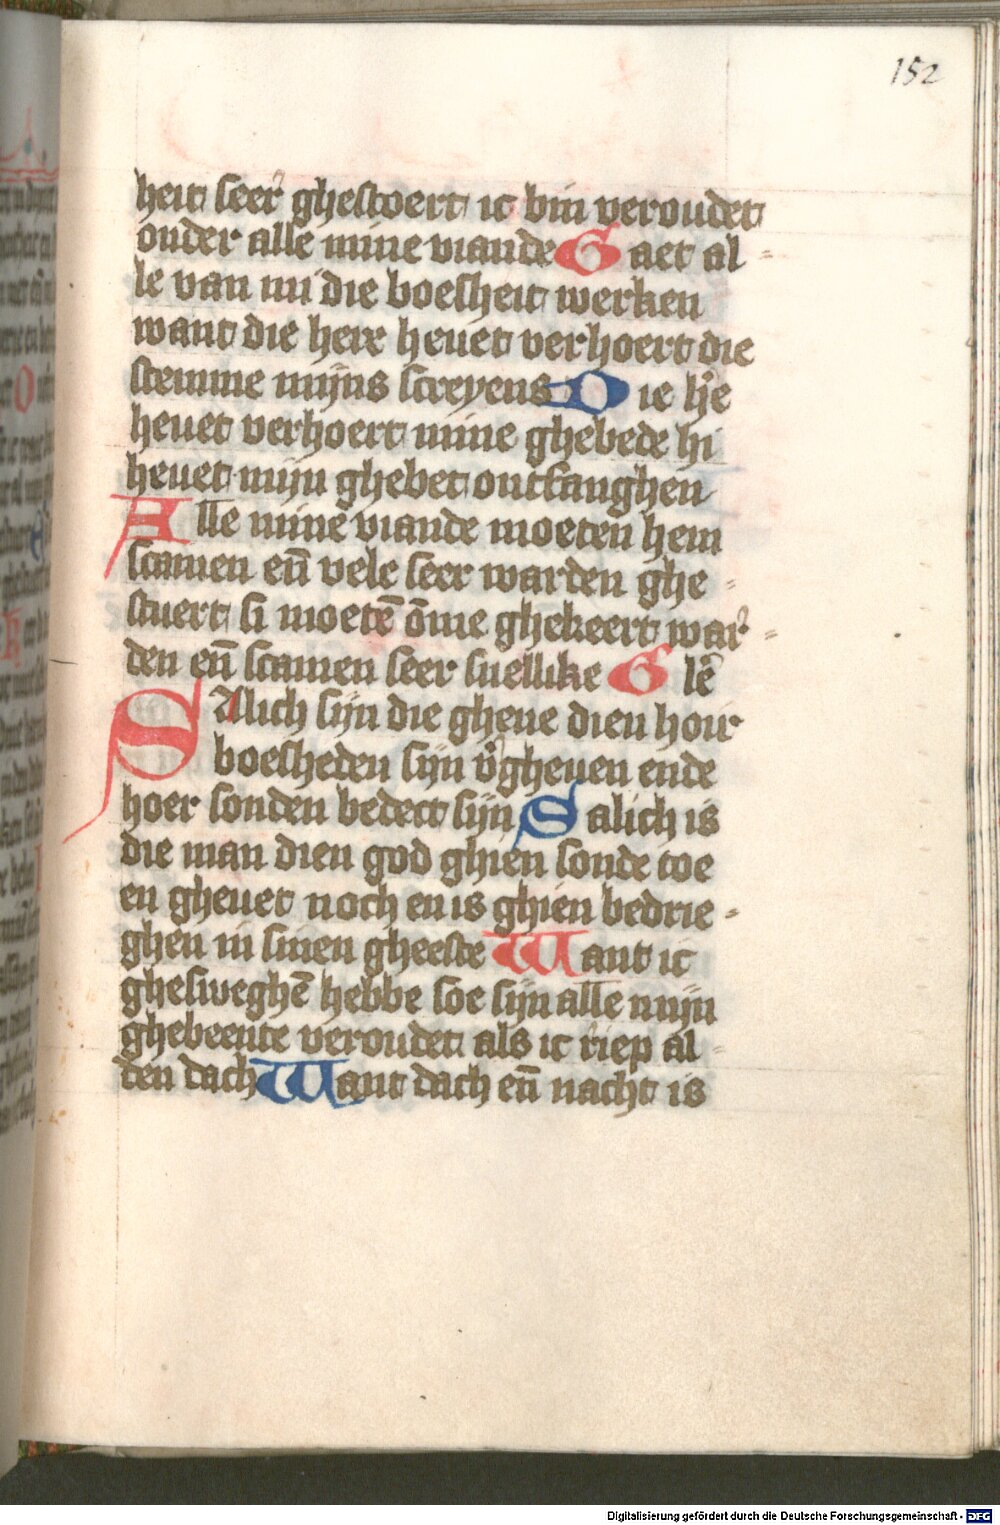 152
heit seer ghestoert ic bin veroudet
onder alle mine viande Gaet al-
le van mi die boesheit werken
want die here heuet verhoert die
stemme mijns screyens Die hẽe
heuet verhoert mine ghebede hi
heuet mijn ghebet ontfanghen
Alle mine viande moeten hem
scamen eñ vele seer warden ghe-
stuert si moetẽ õme ghekeert war-
den eñ scamen seer snellike Glẽ
SAlich sijn die ghene dien hoir
boesheden sijn v̾gheuen ende
hoer sonden bedect sijn Salich is
die man dien god ghien sonde toe
en gheuet noch en is ghien bedrie-
ghen in sinen gheeste Want ic
ghesweghẽ hebbe soe sijn alle mijn
ghebeente veroudet als ic riep al-
den dach Want dach eñ nacht is
Digitalisierung gefördert durch die Deutsche Forschungsgemeinschaft - DFG